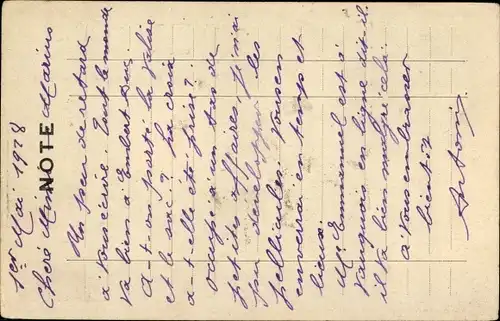 1er Mai 1928
Chère Mimi Marius
NOTE
Un peu de retard
à vous écrire. Tout le monde
va bien à Embet Bus.
A-t-on porté la valise
et le sac? La croix
a-t-elle été prise?
occupé à un tas de
petites affaires, j'ai
pu développer les
pellicules. Vous en
enverrai en temps et
lieux.
Mr Emmanuel est à
Vauguois en ligne dit-il.
il va bien malgré cela.
à vous embrasser
bientôt
Antoni